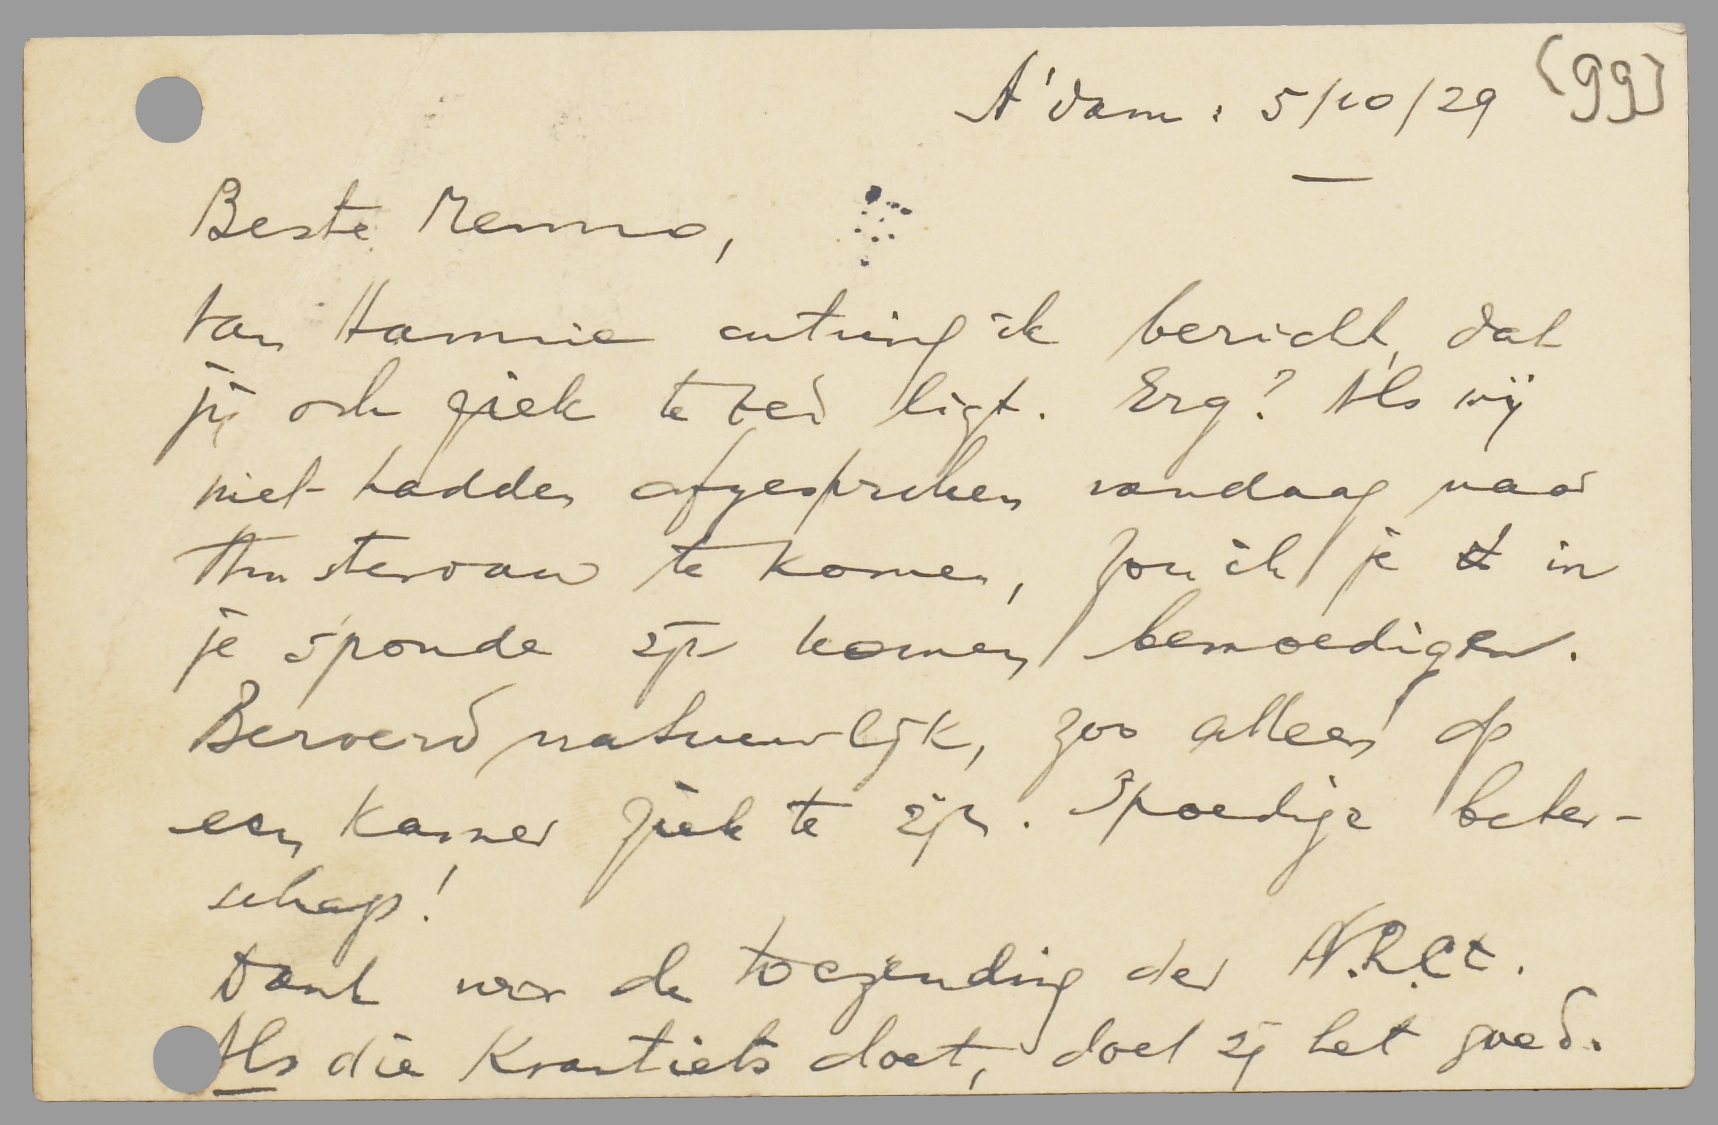 A'dam: 5/10/29 [99]
Beste Menno,
Van Hannie ontving ik bericht, dat
jij ook ziek te bed ligt. Erg? Als wij
niet hadden afgesproken vandaag naar
Amsterdam te komen, zou ik je in
je sponde zijn komen bemoedigen.
Beroerd natuurlijk, zoo alleen op
een kamer ziek te zijn. Spoedige beter-
schap!
Dank voor de toezending der N.R.Ct.
Als die Krant iets doet, doet zij het goed.